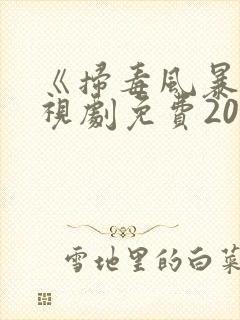 《掃毒風暴
視劇免費20
雪地里的白菜